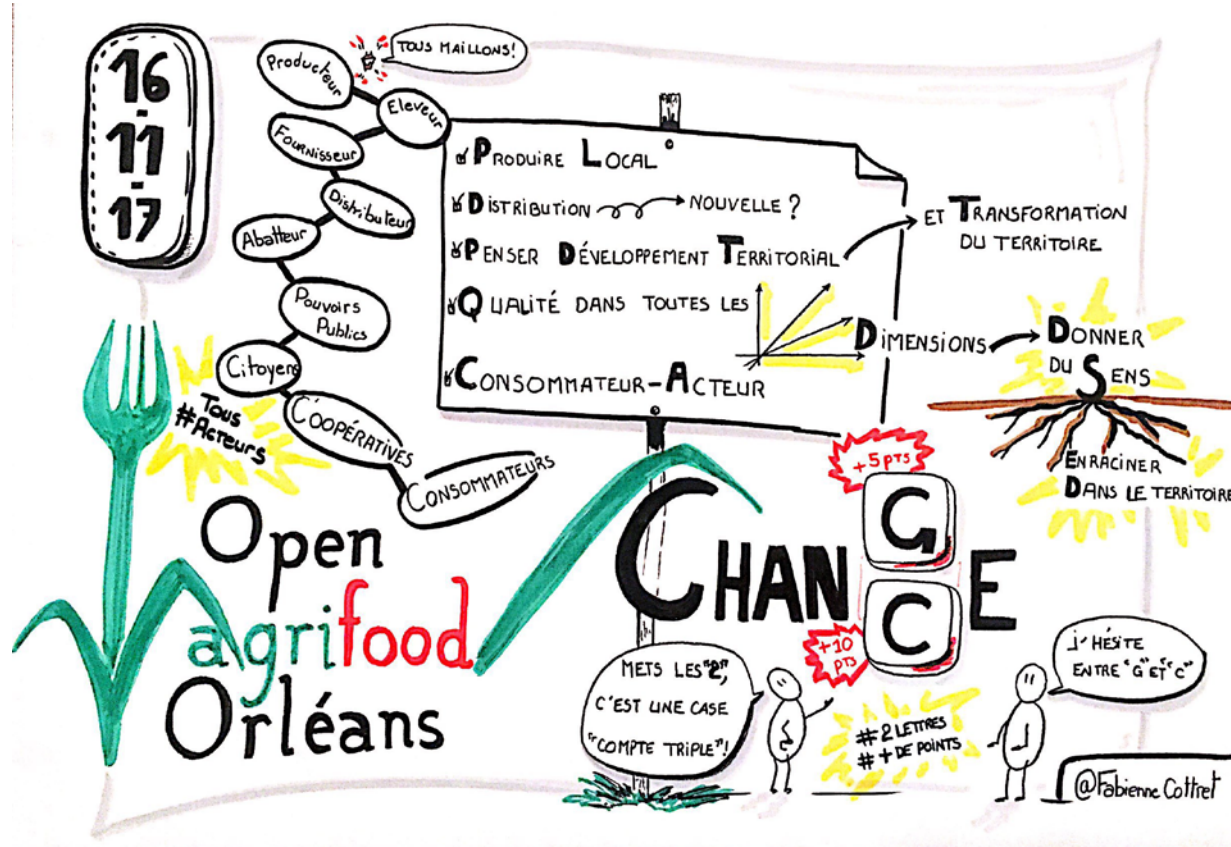 16
-
11
-
17
Producteur
TOUS MAILLONS!
Eleveur
Fournisseur
Distributeur
Abatteur
Pouvoirs
Publics
Citoyens
Tous
#Acteurs
COOPÉRATIVES
CONSOMMATEURS
PRODUIRE LOCAL
DISTRIBUTION NOUVELLE ?
PENSER DÉVELOPPEMENT TERRITORIAL
ET TRANSFORMATION
DU TERRITOIRE
QUALITÉ DANS TOUTES LES
DIMENSIONS
DONNER
DU SENS
CONSOMMATEUR-ACTEUR
ENRACINER
DANS LE TERRITOIRE
Open
agrifood
Orléans
+5 PTS
G
CHAN E
C
+10
PTS
METS LES "2",
C'EST UNE CASE
"COMPTE TRIPLE"!
#2 LETTRES
# + DE POINTS
J'HÉSITE
ENTRE "G" ET "C"
@Fabienne Cottret